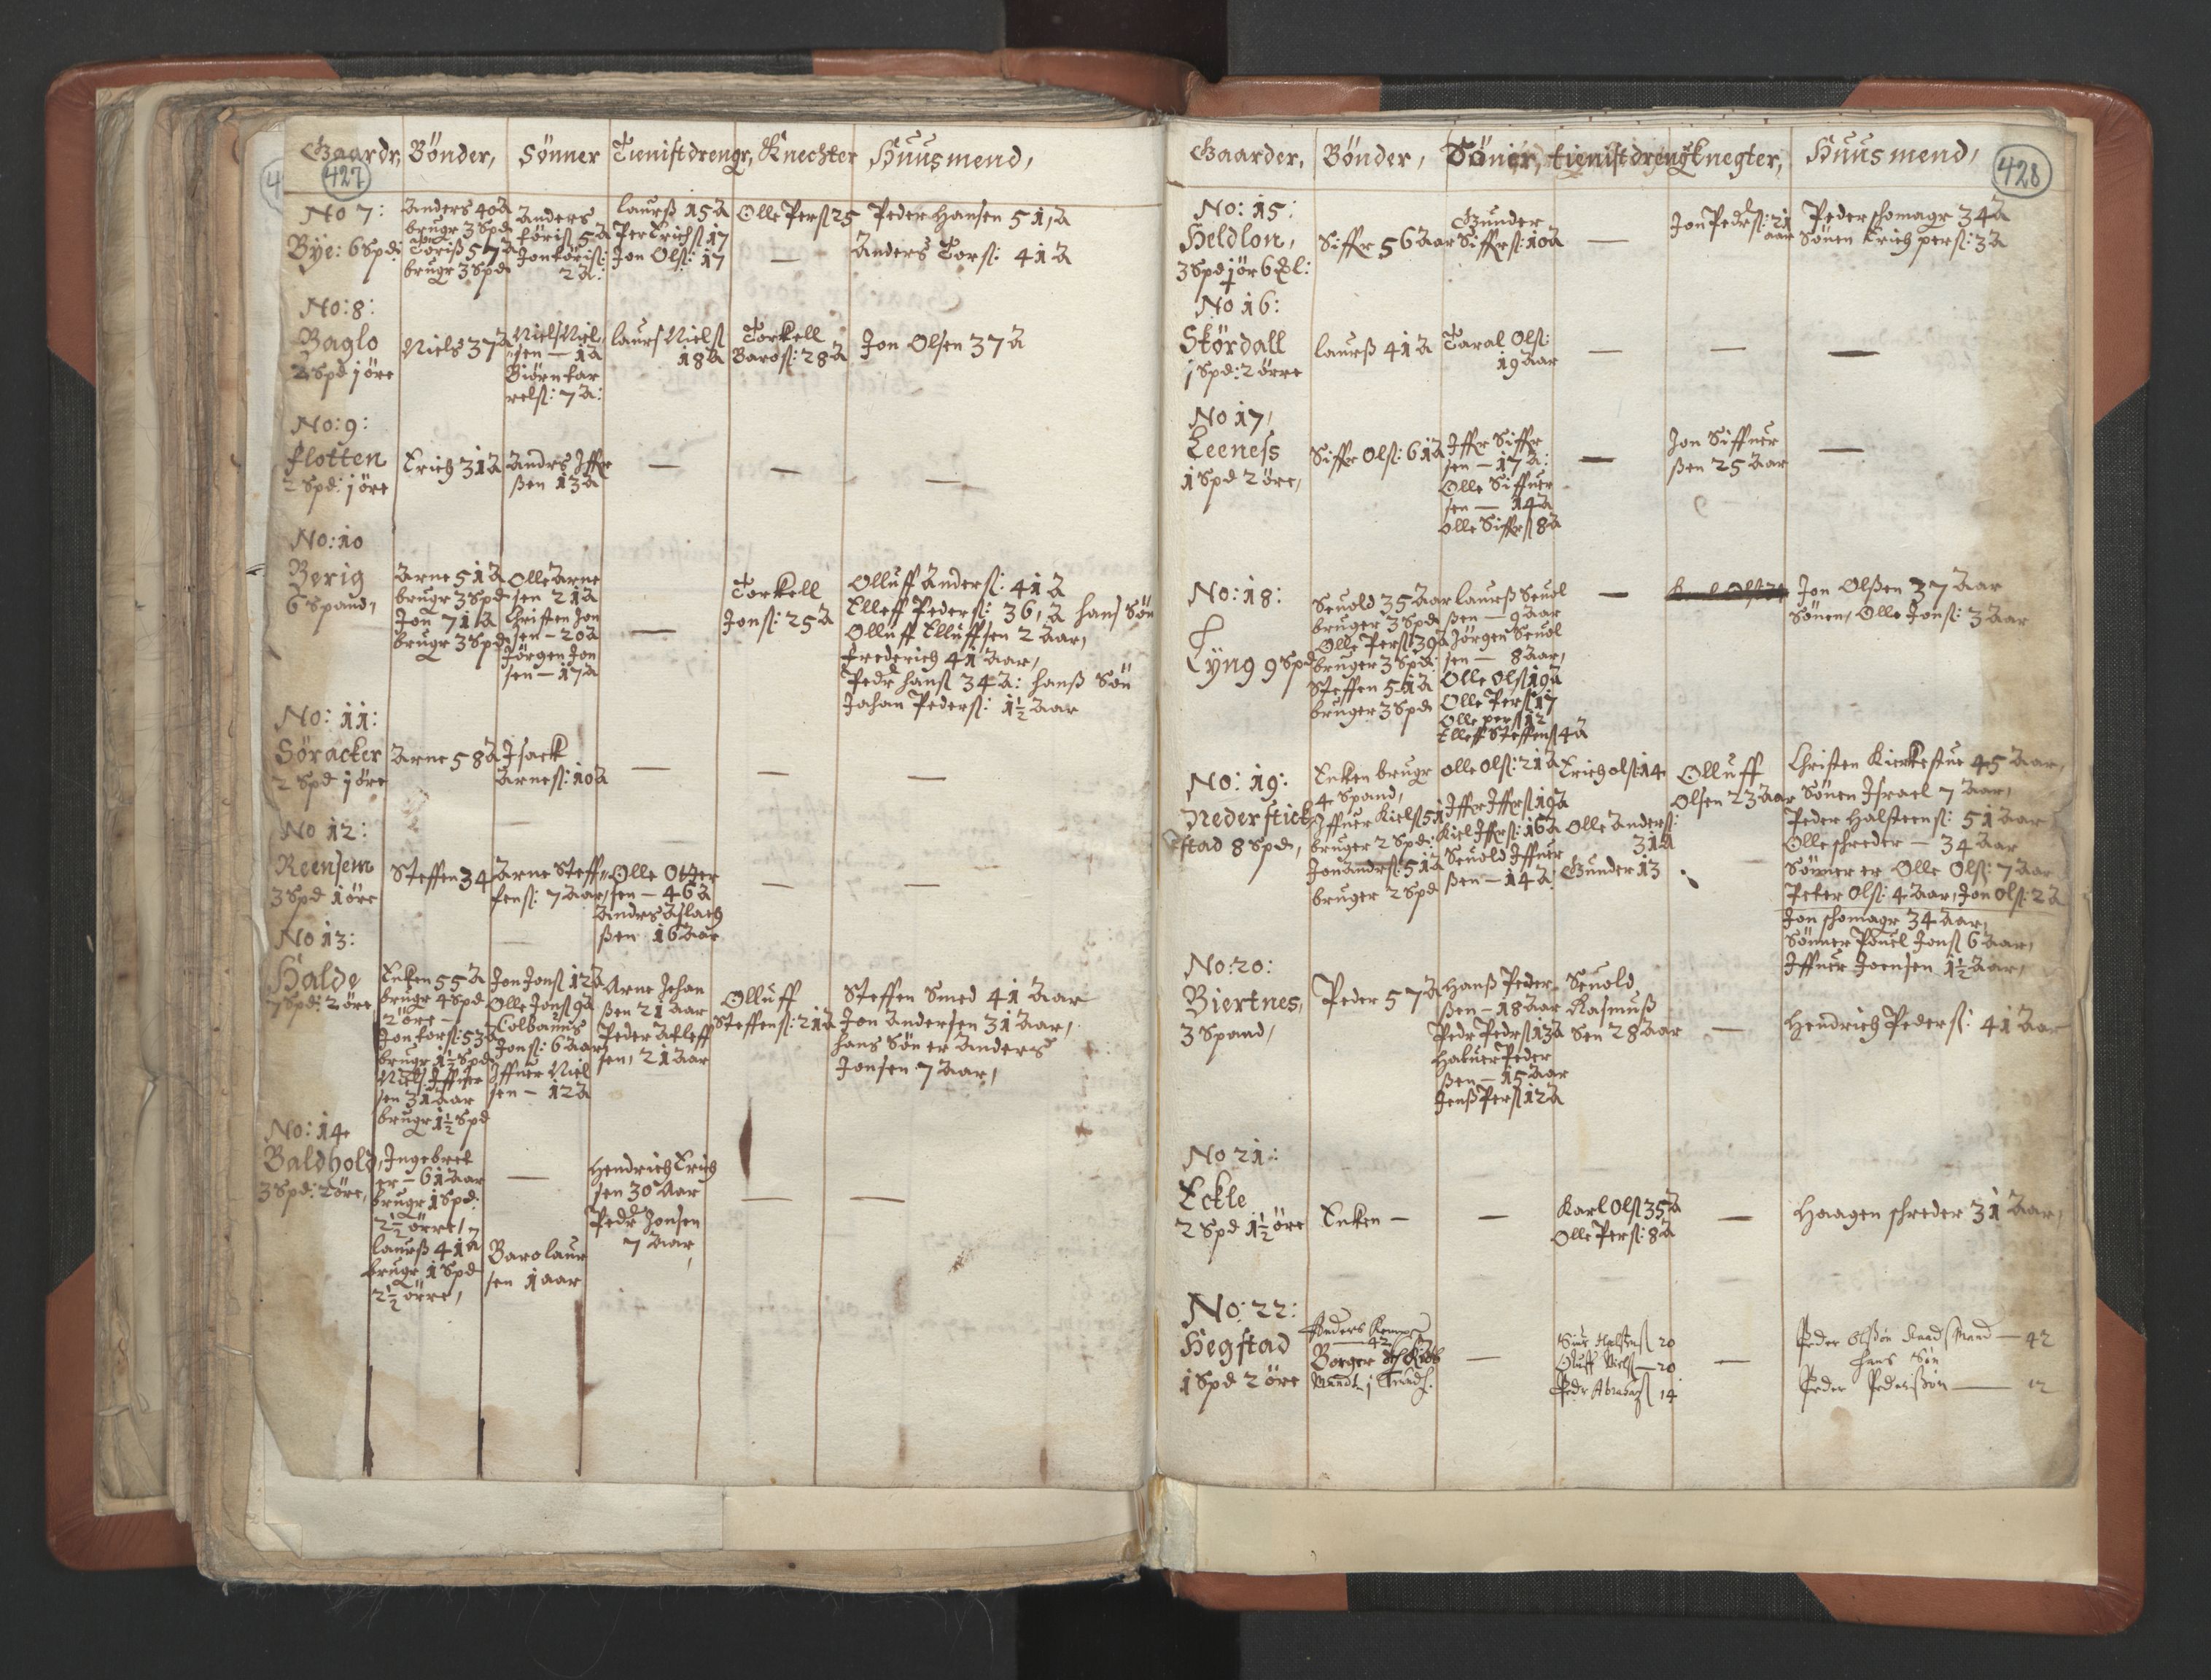 Gaardr, Bönder, Sönner Tienistdrengr, Knechter Huusmend,
427
No 7:
Bye: 6 Spd:
Anders 40 A
brugr 3 Spd
Töriß 57 A
brugr 3 Spd
Anders
töriß 5 A
Jon töris:
2 A:
laurß 15 A
Per Erichs 17
Jon Ols: 17
Olle Pers 25
—
Peder Hansen 51, A
Anders Tors: 41 A
No: 8:
Baglo
2 Spd 1 öre
Niels 37 A
Niels Niel
sen — 1 A
Biörn tar
rels: 7 A:
laurs Niels
18 A
Torkell
Baros: 28 A
Jon Olsen 37 A
No: 9:
flotten
2 Spd: 1 öre
Erich 31 A
Andrs Iffer
ßen 13 A
—
—
—
No: 10
Berig
6 Spand,
Arne 51 A
brugr 3 Spd
Jon 71 A
brugr 3 Spd
Olle Arne
sen 21 A
Christen Jon
sen — 20 A
Jörgen Jon
sen — 17 A
—
Torkell
Jons: 25 A
Olluff Anders: 41 A
Elleff Peders: 36, A hans Sön
Olluff Elluffsen 2 Aar,
Frederich 41 Aar,
Pedr hans 34 A: hanß Sön
Johan Peders: 1½ Aar
No: 11:
Söracker
2 Spd 1 öre
Arne 58 A
Isack
Arnes: 10 A
—
—
—
No 12:
Reensem
3 Spd 1 öre
Steffen 34
Arne Steff
fens: 7 Aar,
Olle Otter
sen — 46 A
Andrs Aslach
ßen 16 Aar
—
—
No 13:
Halde
7 Spd: 2 öre
Enken 55 A
brugr 4 Spd
2 öre —
Jon tors: 53 A
brugr 1½ Spd
Niels Iffuer
sen 31 Aar
brugr 1½ Spd
Jon Jons 12 A
Olle Jons 9 A
Colbanus
Jons: 6 Aar
Iffuer Niel
sen — 12 A
Arne Johan
ßen 21 Aar
Peder Atleff
sen, 21 Aar
Olluff
Steffens: 21 A
Steffen Smed 41 Aar
Jon Andersen 31 Aar,
hans Sön er Anders
Jonsen 7 Aar,
No: 14
Baldhold,
3 Spd: 2 öre,
Ingebret
er — 61 Aar
brugr 1 Spd:
2½ örre,
laurß 41 A
brugr 1 Spd
2½ örre,
—
Baro laur
sen 1 aar
Hendrich Erich
sen 30 Aar
Pedr Jonsen
7 Aar,
—
—
Gaarder, Bönder, Söner, tienistdreng Knegter, Huusmend,
428
No: 15:
Heldlon,
3 Spd 1 ör 6
Siffr 56 Aar
Gunder
Siffrs: 10 A
—
Jon Pedrs: 21
aar
Peder shomagr 34 A
Sönen Erich pers: 3 A
No 16:
Stördall
1 Spd: 2 örre
laurß 41 A
Taral Ols:
19 Aar
—
—
—
No 17,
Leeness
1 Spd 2 öre,
Siffr Ols: 61 A
Iffr Siffr
sen — 17 A:
Olle Siffuer
sen — 14 A
Olle Siffrs 8 A
—
Jon Siffuer
ßen 25 Aar
—
No: 18:
Lyng 9 Spd
Seuold 35 Aar
bruger 3 Spd
Olle Pers 39 A
bruger 3 Spd:
Steffen 51 A
bruger 3 Spd
laurß Seuol
ßen — 9 Aar
Jörgen Seuol
sen — 8 Aar,
Olle Ols 19 A
Olle Pers 17
Olle pers 12
Elleff Steffens 4 A
—
Jon Olßen 37 Aar
Sönen, Olle Jons: 3 Aar
No: 19:
Nederstick
stad 8 Spd,
Enken brugr
4 Spand,
Iffuer Kiels 51
bruger 2 Spd:
Jon Andrs: 51 A
bruger 2 Spd
Olle Ols: 21 A
Iffr Iffrs 19 A
Kiel Iffrs: 16 A
Seuold Iffuer
ßen — 14 A
Erich ols 14
Olle Anders:
31 A
Gunder 13
Olluff
Olsen 23 Aar
Christen Kierkestue 45 Aar,
Sönen Israel 7 Aar,
Peder Halsteens: 51 Aar
Olle shreder — 34 Aar
Sönner er Olle Ols: 7 Aar
Peter Ols: 4 Aar, Jon Ols: 2 A
Jon shomagr 34 Aar,
Sönner Pouel Jons 6 Aar,
Iffuer Joensen 1½ Aar,
No: 20:
Biertnes,
3 Spand,
Peder 57 A
Hanß Peder
ßen — 18 Aar
Pedr Pedrs 13 A
Haluer Peder
ßen — 15 Aar
Jenß Pers 12 A
Seuold
Rasmuß
Sen 28 Aar
—
Hendrich Peders: 41 Aar
No 21:
Eckle
2 Spd 1½ öre
Enken —
—
Karl Ols 35 A
Olle Pers: 8 A
—
Haagen shreder 31 Aar,
No: 22:
Hegstad
1 Spd 2 öre
Anders
42
Borger
—
20
Oluff Niels — 20
Pedr 14
—
Peder Olßön Mand — 42
hans Sön
Peder Pederßön — 12